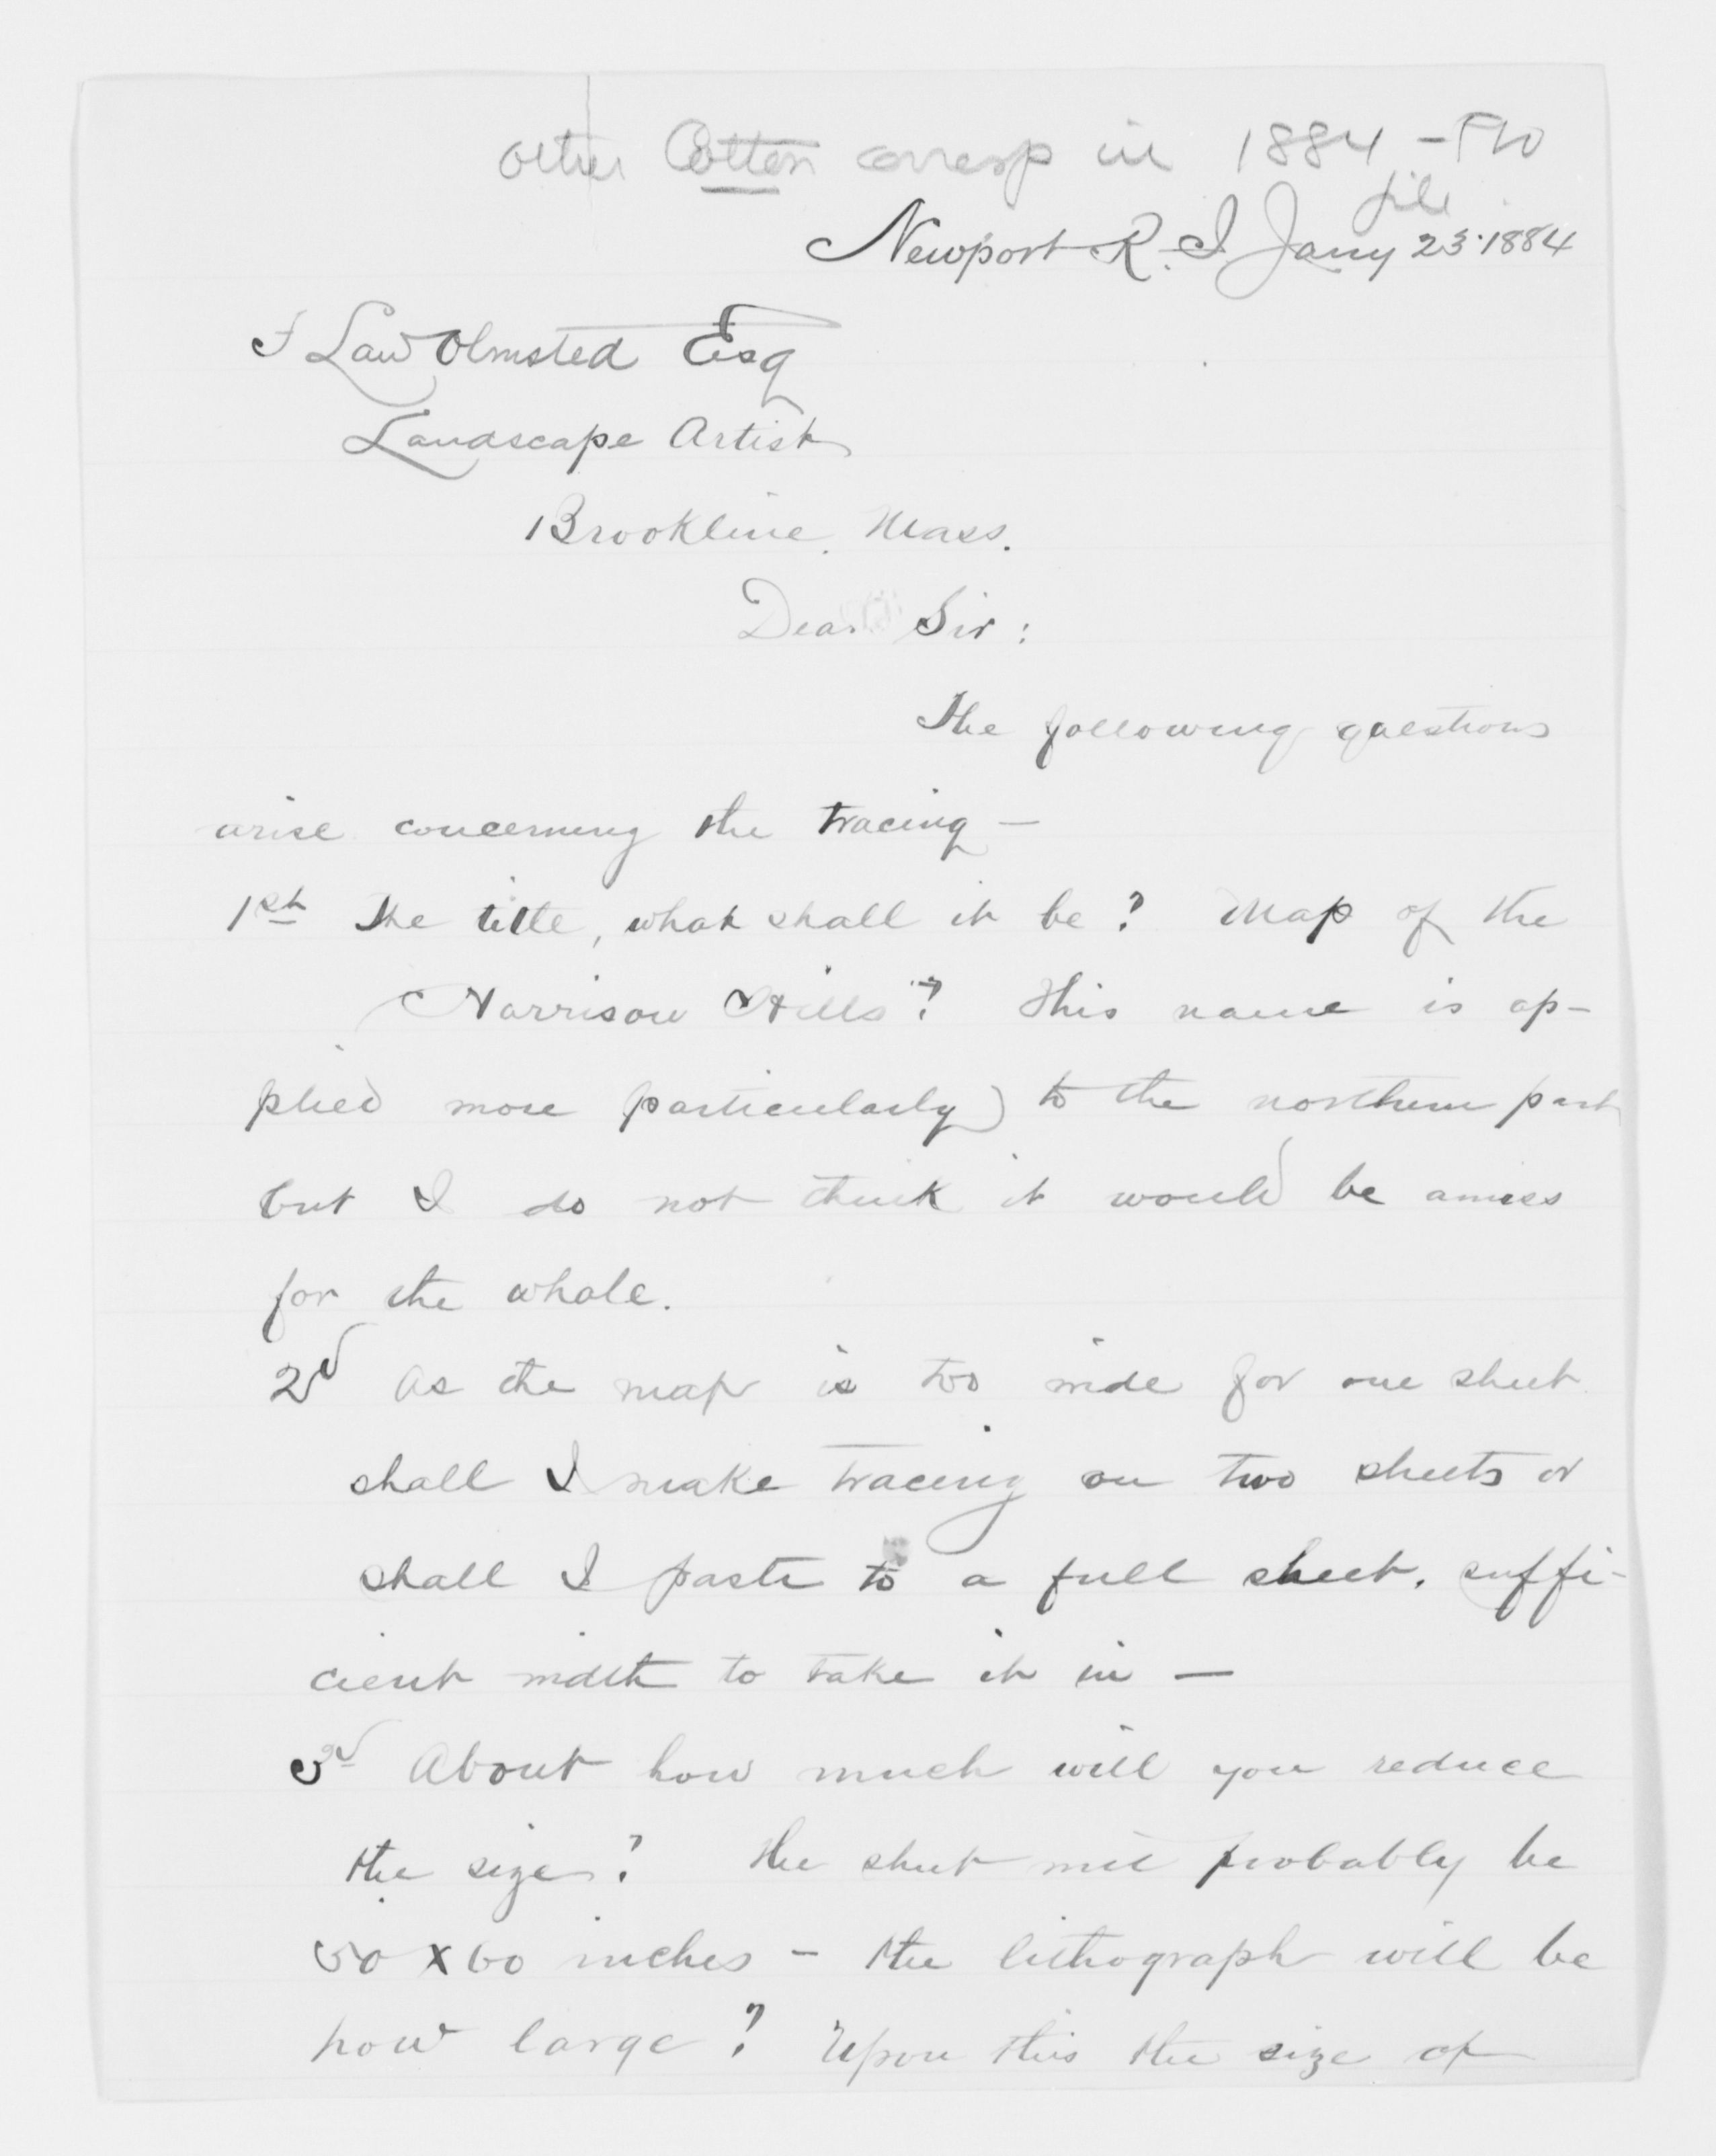 other Cotton corresp in 1884 -
file
Newport R. I. Jany 23. 1884
F Law Olmsted Esq
Landscape Artist
Brookline. Mass.
Dear Sir:
The following questions
arise concerning the tracing —
1st The title, what shall it be? Map of the
"Harrison Hills"? This name is ap-
plied more particularly to the northern part
but I do not think it would be amiss
for the whole.
2d As the map is too wide for one sheet
shall I make tracing on two sheets or
shall I paste to a full sheet, suffi-
cient width to take it in —
3d About how much will you reduce
the size? The sheet will probably be
50 x 60 inches - the lithograph will be
how large? Upon this the size of